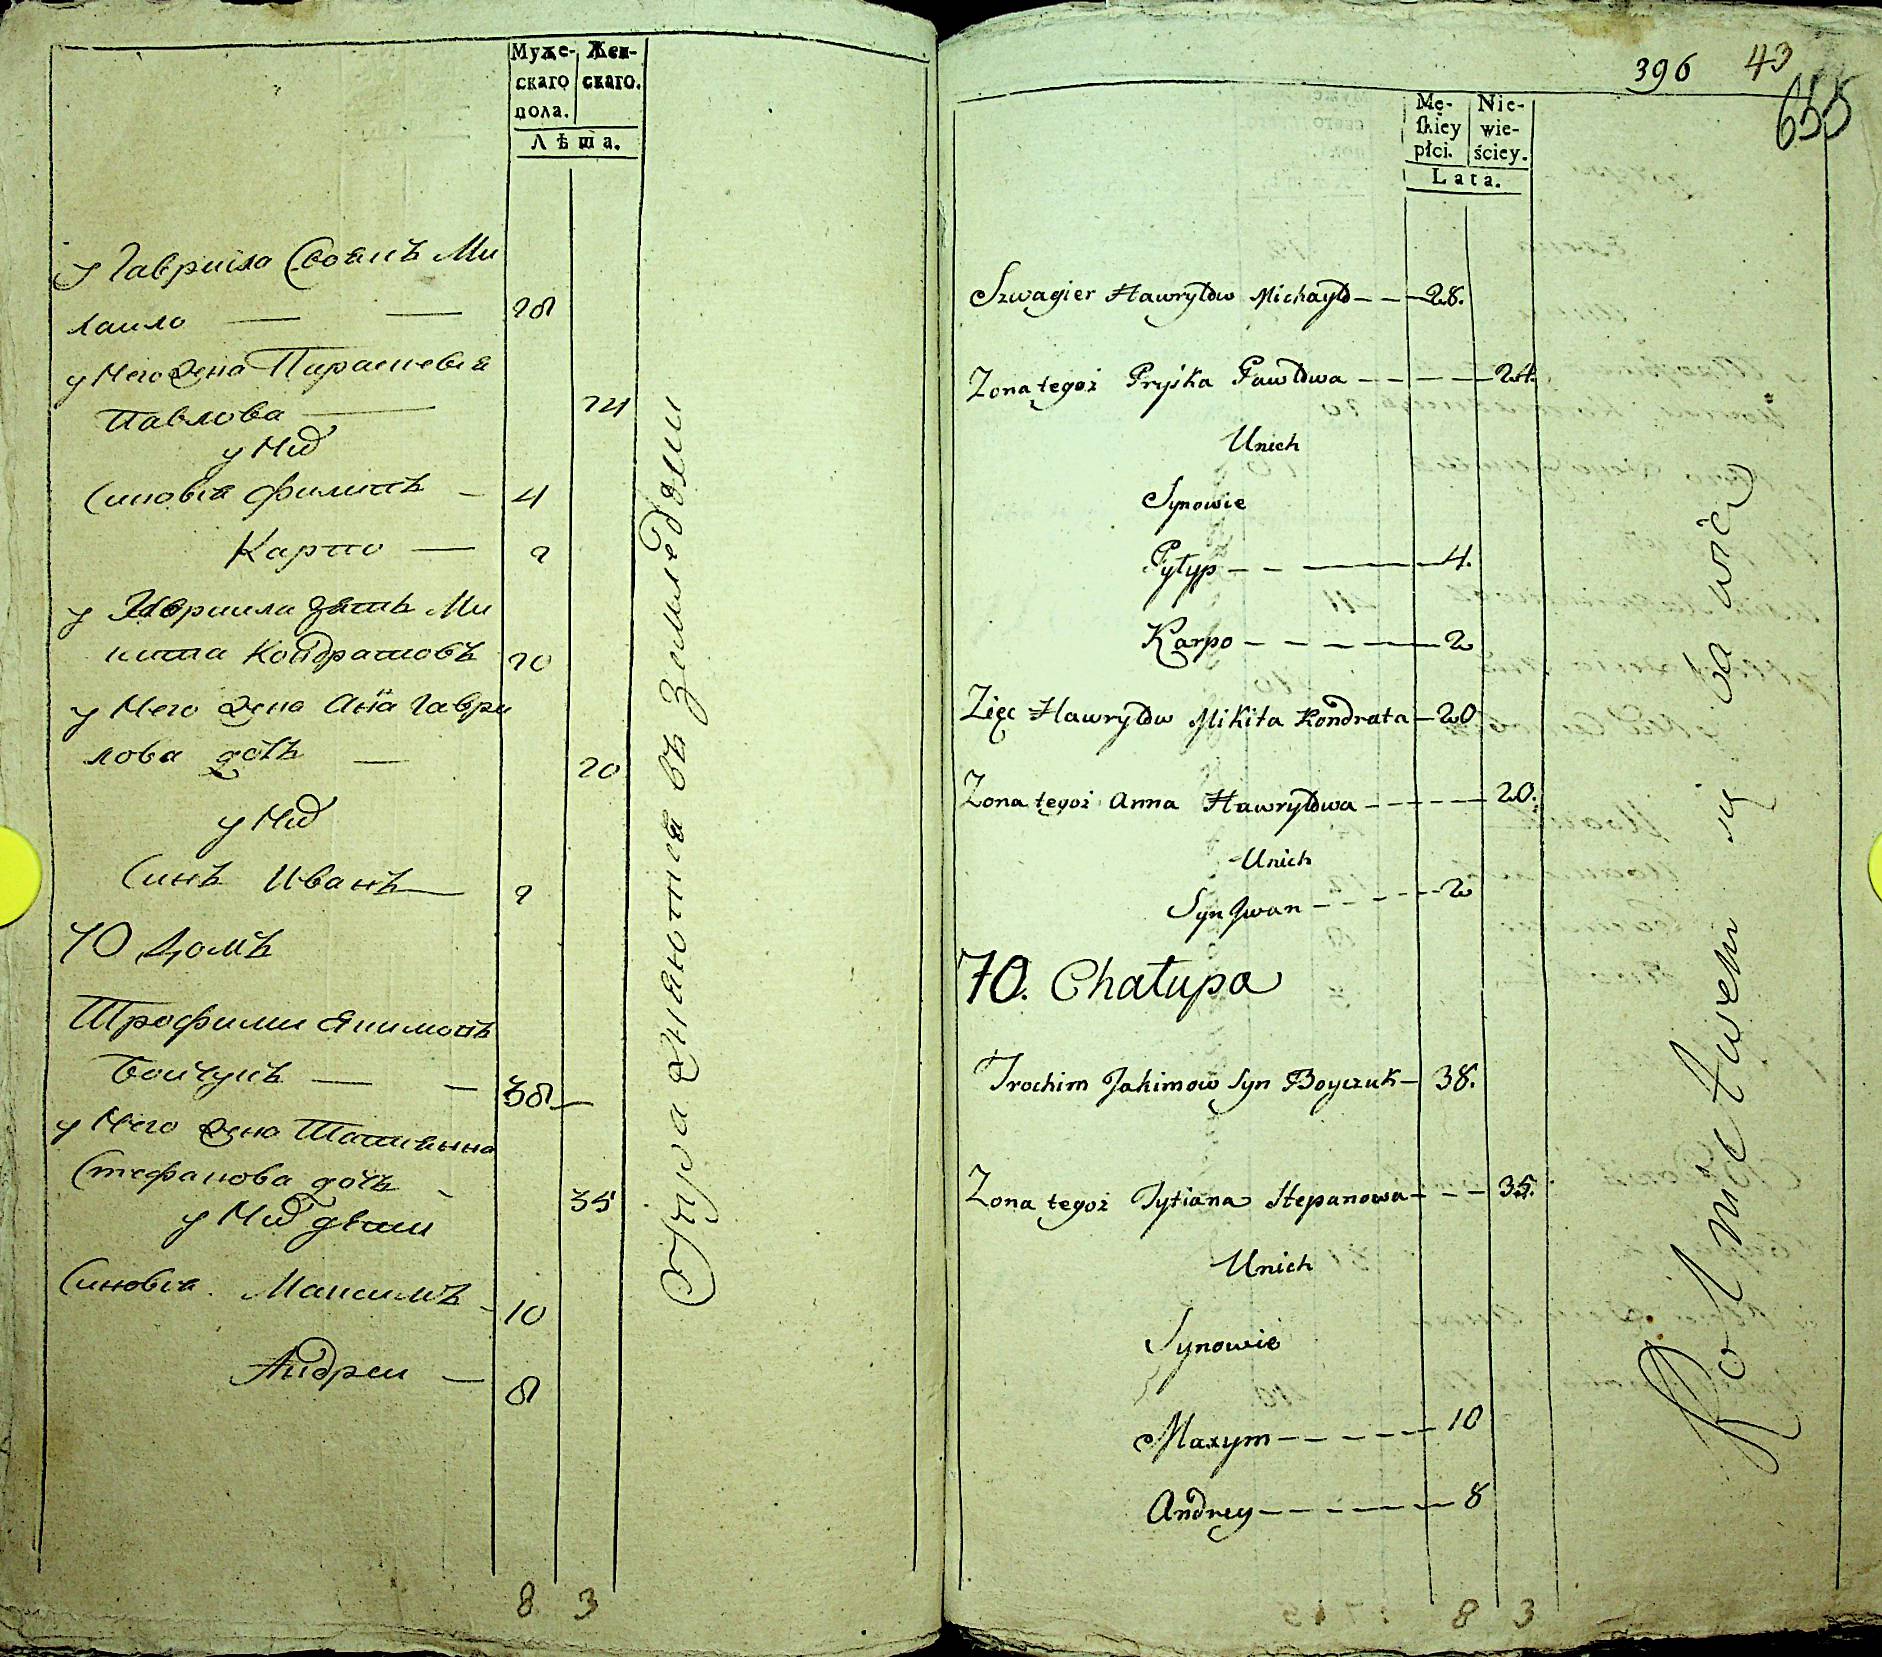 Муже- Жен-
скаго скаго.
пола.
Лѣта.
у Гавриила Своякъ Ми
хаило — — 28
у Него Жена Параскевія
Павлова — 24
у Них
Синовія Филипъ — 4
Карпо — 2
у Гавриила Зять Ми
кита Кондратовъ 20
у Него Жена Анна Гаври
лова дочь — 20
у Них
Синъ Иванъ — 2
70 Домъ
Трофимъ Якимовъ
Бойчукъ — — 38 —
у Него Жена Татиянна
Стефанова дочь - 35
у Них дѣти
Синовія Максимъ - 10
Андрей — 8
8 3
Упражняются въ Земледѣлии
396 43
655
Mę- Nie-
skiey wie-
płci. ściey.
Lata.
Szwagier Hawryłow Michayło - - - 28.
Zona tegoż Pryśka Pawłowa - - - - - 24.
Unich
Synowie
Pyłyp - - - - 4.
Karpo - - - - - 2
Zięc Hawryłow Mikita Kondrata - 20
Zona tegoż Anna Hawryłowa - - - - - 20.
Unich
Syn Jwan - - - - - 2
70. Chałupa
Trochim Jakimow Syn Boyczuk - 38.
Zona tegoż Tytiana Stepanowa - - - 35.
Unich
Synowie
Maxym - - - - - 10
Andrey - - - - - - 8
8 3
Rolnictwem się bawią